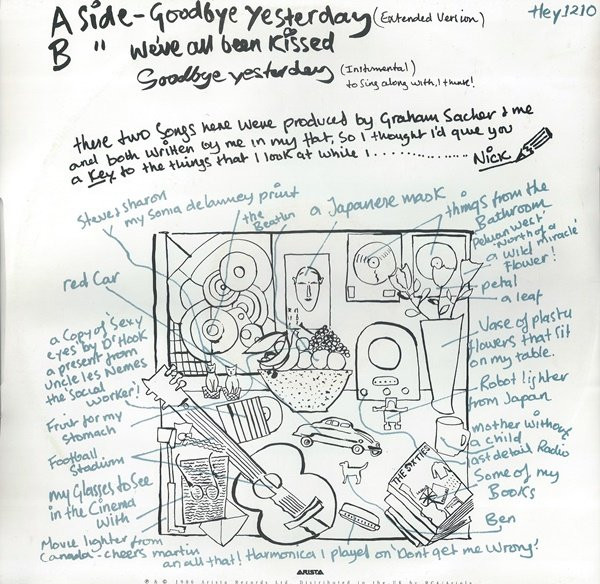 A Side - Goodbye yesterday (Extended Version)
Hey1210
B " we've all been kissed
Goodbye yesterday (Instrumental)
to sing along with, I think!
these two songs here were produced by Graham Sacher & me
and both written by me in my flat, so I thought I'd give you
a key to the things that I look at while I ...............
Nick
Steve & sharon
my Sonia delanney print
the Beatles
a Japanese mask
things from the
Bathroom
'North of a
a wild miracle'
flower!
red Car
petal
a leaf
a Copy of 'Sexy
eyes by Dr Hook
a present from
uncle les Nemes
the Social
worker!
Vase of plastic
flowers that sit
on my table.
Robot lighter
from Japan
Fruit for my
stomach
Football
Stadium
mother without
a child
last detail Radio
Some of my
Books
THE SIXTIES
my Glasses to See
in the Cinema
with
Ben
Movie lighter from
Canada - cheers martin
an all that! Harmonica I played on 'Dont get me Wrong'
ARISTA
℗ & © 1986 Arista Records Ltd. Distributed in the UK by